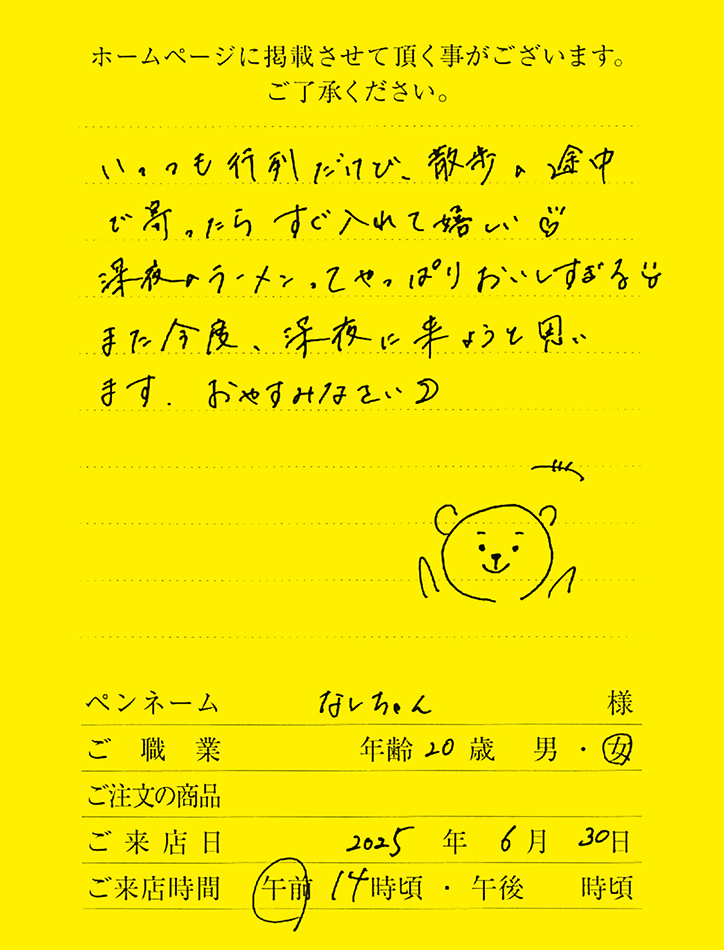 ホームページに掲載させて頂く事がございます。
ご了承ください。
いっつも行列だけど、散歩の途中
で寄ったらすぐ入れて嬉しい
深夜のラーメンってやっぱりおいしすぎる
また今度、深夜に来ようと思い
ます. おやすみなさい
ペンネーム なしちゃん 様
ご職業 年齢 20 歳 男・女
ご注文の商品
ご来店日 2025 年 6 月 30 日
ご来店時間 午前 14 時頃・午後 時頃